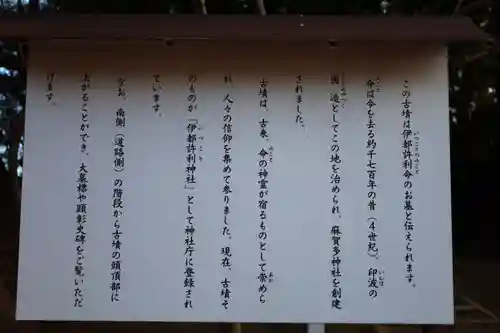 この古墳は伊都許利命のお墓と伝えられます。
命は今を去る約千七百年の昔（４世紀）、印波の
国造としてこの地を治められ、麻賀多神社を創建
されました。
古墳は、古来、命の神霊が宿るものとして崇めら
れ、人々の信仰を集めて参りました。現在、古墳そ
のものが「伊都許利神社」として神社庁に登録され
ています。
なお、南側（道路側）の階段から古墳の頭頂部に
上がることができ、大墓標や顕彰史碑をご覧いただ
けます。